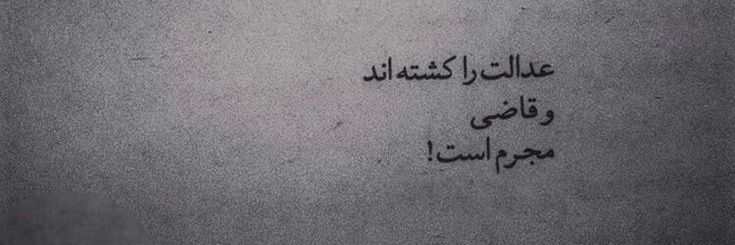 عدالت را کشته اند
و قاضی
مجرم است!